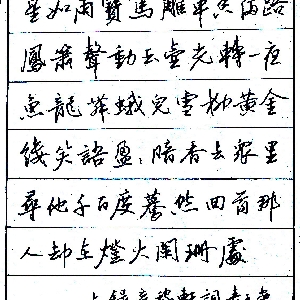 星如雨寶馬雕車香滿路
鳳簫聲動玉壺光轉一夜
魚龍舞蛾兒雪柳黃金
縷笑語盈〻暗香去眾里
尋他千百度驀然回首那
人却在燈火闌珊處